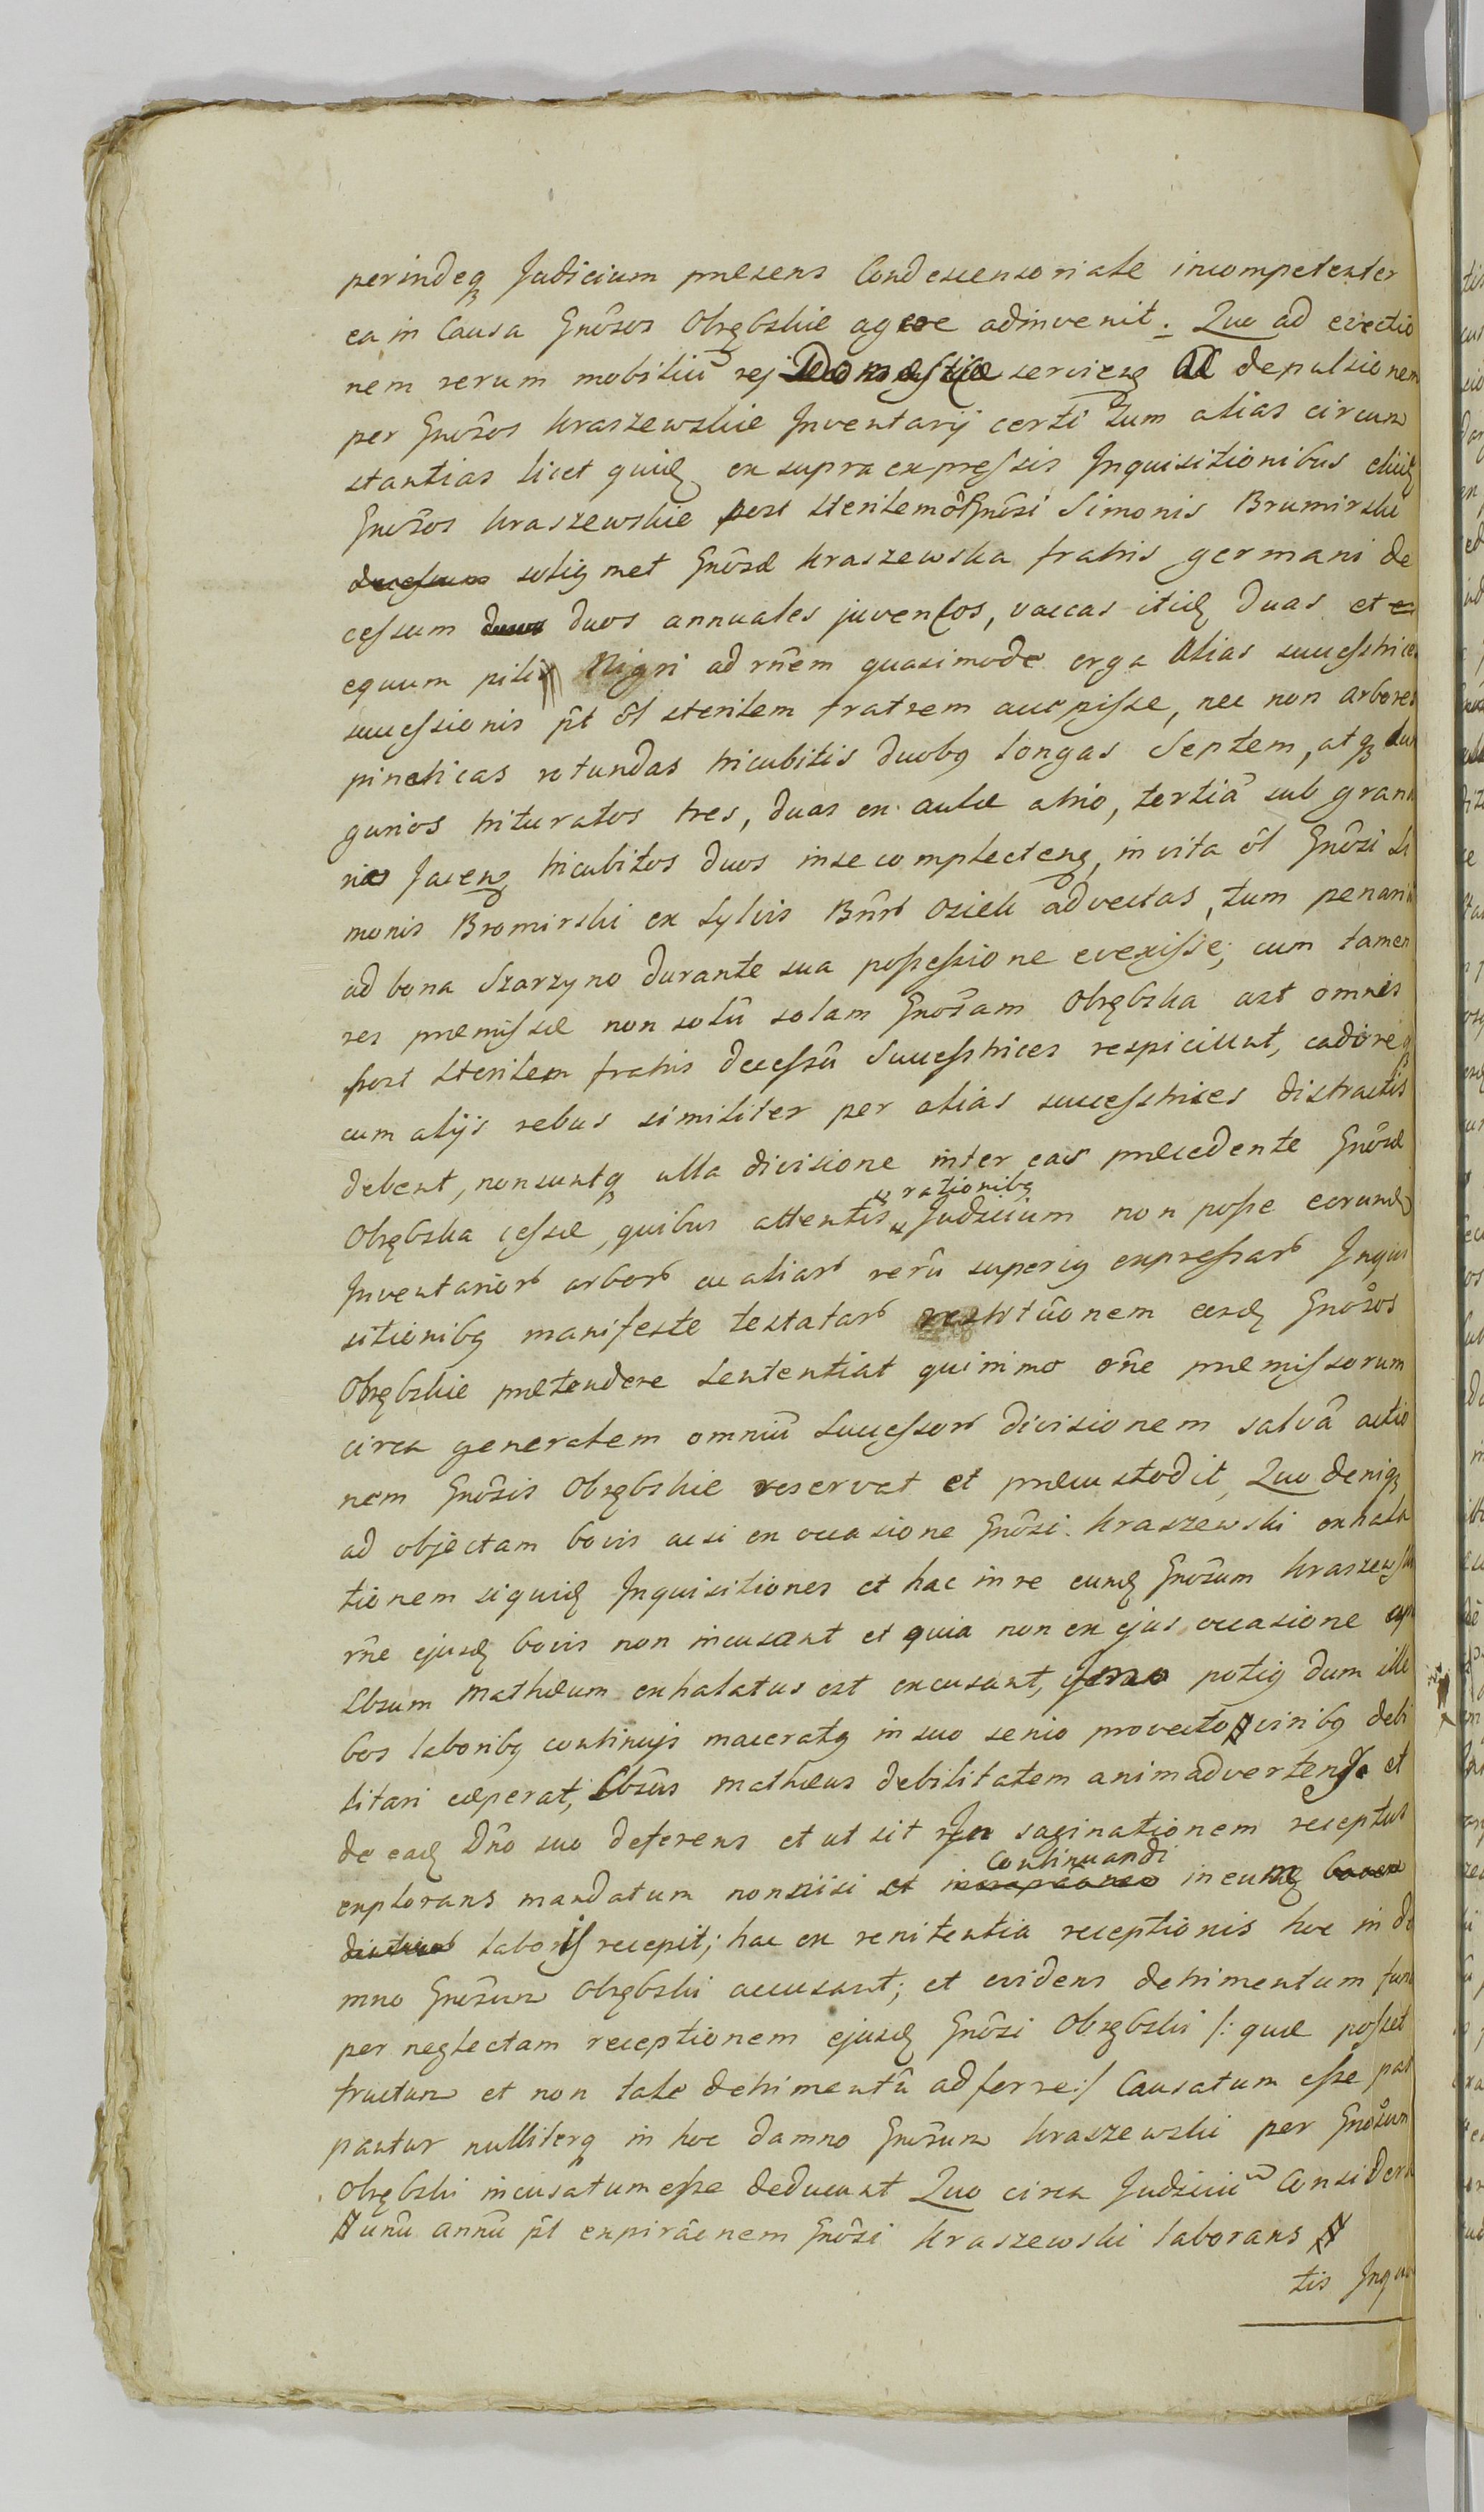 perindeq Judicium præsens Condescensoriale incompetenter
ea in Causa Gnôsos Obrębskie agere adinvenit. Quo ad evectio
nem rerum mobiliũ rej Domesticæ servien ac depulsionem
per Gnosos Kraszewskie Inventarij certi tum alias circum
stantias licet quid ex supra expressis Inquisitionibus
Gnosos Kraszewskie post sterilem ôl Gnôsi Simonis Bromirski
decessum solius met Gnôsæ Kraszewska fratris germani de
cessum duos duos annuales juvencos, vaccas itid duas et
equum pilis Nigri ad rñem quasimode erga alias successtrices
successionis p̃t ôl sterilem fratrem accepisse, nec non arbores
pinethicas rotundas tricubitis duobq longas Septem, atq
gurios trituratos tres, duas ex aulæ atrio, tertiã sub grana
rio Jacen tricubitos duos in se complecten, in vita ôl Gnôsi Si
monis Bromirski ex Sylvis Bnr Osiek advectas, tum penaria
ad bona Szarzyno durante sua possessione evexisse; cum tamen
res præmissæ non solũ solam Gnosam Obrębska ast omnes
post sterilem fratris decessũ Successtrices respiciunt, cadereq
cum alijs rebus similiter per alias successtrices distractis
debent, non suntq ulla divisione inter eas præcedente Gnôsæ
Obrębska cessæ, quibus attentis rationibq Judicium non posse eorund
Inventarior arbor ac aliar rerũ superiq expressar Inqui
sitionibq manifeste testatar restitũonem eosd Gnosos
Obrębskie prætendere sententiat quinimo oñe præmissorum
circa generalem omniũ Successor divisionem salvã actio
nem Gnôsis Obrębskie reservat et præcustodit, Quo deniq
ad objectam bovis acsi ex occasione Gnôsi Kraszewski exhala
tionem siquid Inquisitiones et hac in re eund Gnôsum Kraszewski
rñe ejusd bovis non incusant et quia non ex ejus occasione
Lbsum Mathæum exhalatus est excusant, Imo potiq dum ille
bos laboribq continujs maceratq in suo senio provecto viribq debi
litari cæperat, Lbsus Mathæus debilitatem animadvertens et
de ead Dño suo deferens et ut sit In saginationem receptus
explorans mandatum non nisi et continuandi in eumd bovem
laboris recepit; hac ex renitentia receptionis hoc in da
mno Gnôsum Obrębski accusant; et evidens detrimentum
per neglectam receptionem ejusd Gnôsi Obrębski /: quæ posset
fructum et non tale detrimentũ adferre :/ Causatum esse
pantur nulliterq in hoc damno Gnôsum Kraszewski per Gnôsum
Obrębski incusatum esse deducunt Quo circa Judiciũ Considera
unũ annũ p̃t expirãonem Gnôsi Kraszewski laborans
tis Inqui